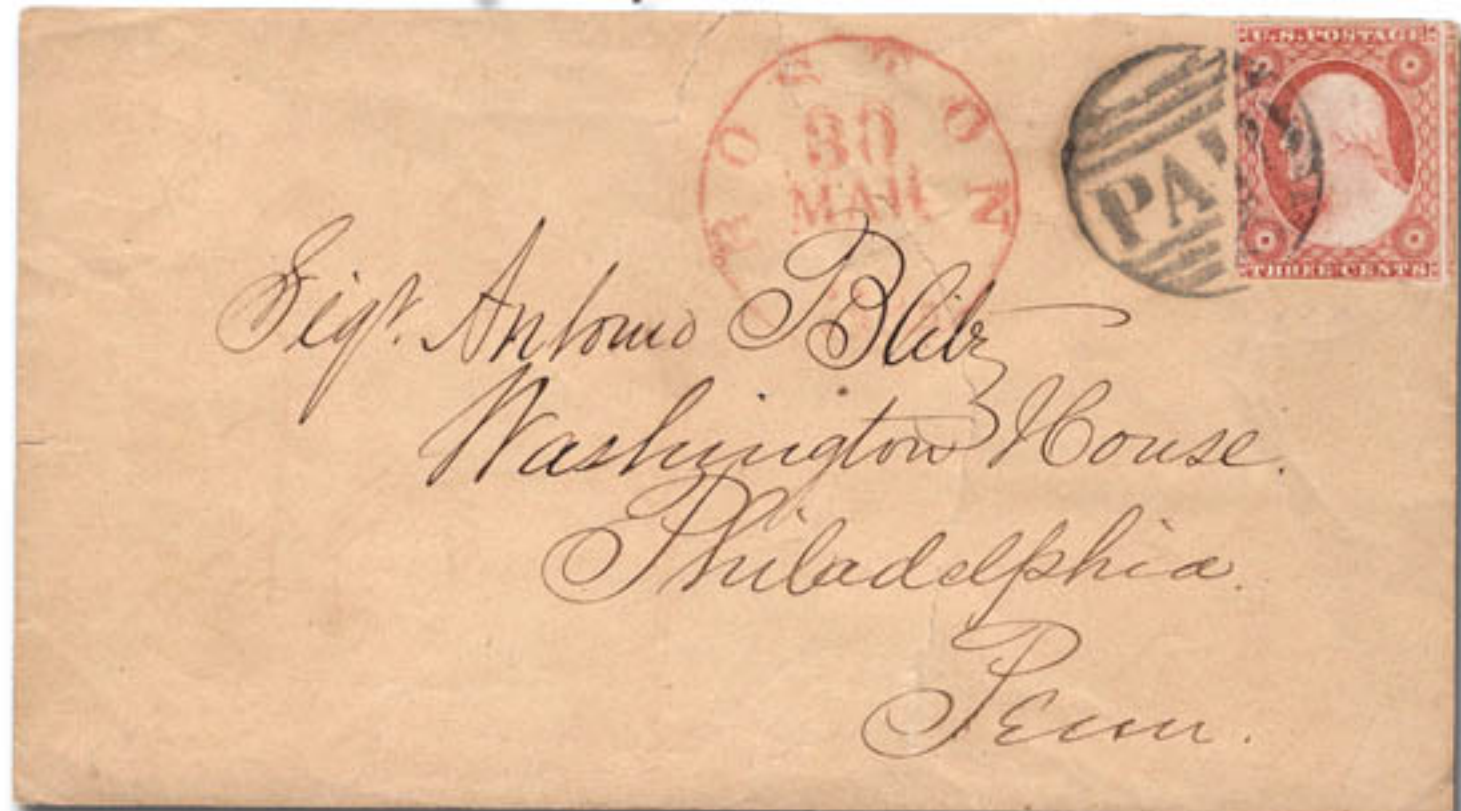 BOSTON
30
MAR
PAI
U.S. POSTAGE
THREE CENTS
Sigr. Antonio Blitz
Washington House.
Philadelphia.
Penn.